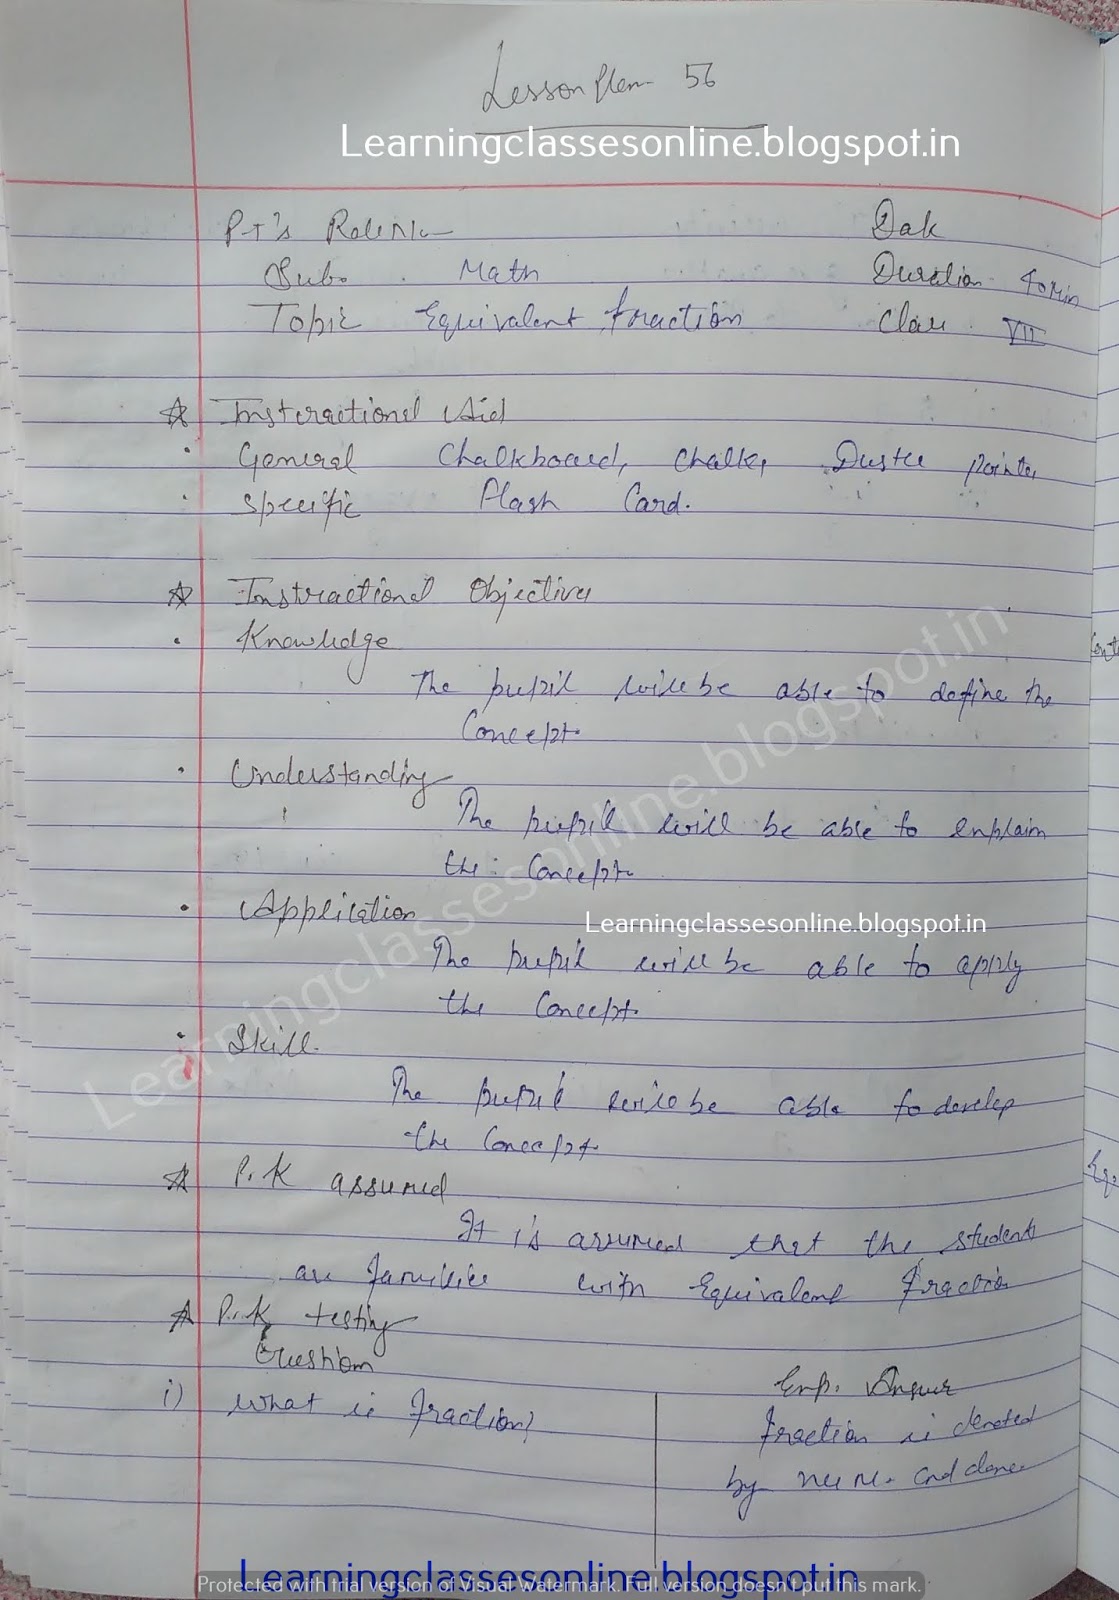 Lesson Plan 56
Learningclassesonline.blogspot.in
P-T's Roll No
Sub. Math
Duration 40 Min
Topic Equivalent fraction
Class VII
☆ Instractional Aid
• General Chalkboard, Chalk, Duster pointer
• Specific Flash Card.
☆ Instractional Objectives
• Knowledge
The pupil will be able to define the
Concept.
• Understanding
The pupil will be able to explain
the Concept.
• Application
Learningclassesonline.blogspot.in
The pupil will be able to apply
the Concept.
• Skill.
The pupil will be able to develop
the Concept.
☆ P.K assumed
It is assumed that the students
are familiar with Equivalent fraction
☆ P.K testing
Question
Exp. Answer
i) What is fraction?
Fraction is denoted
by num. and
Learningclassesonline.blogspot.in
Learningclassesonline.blogspot.in
Protected with trial version of Visual Watermark. Full version doesn't put this mark.